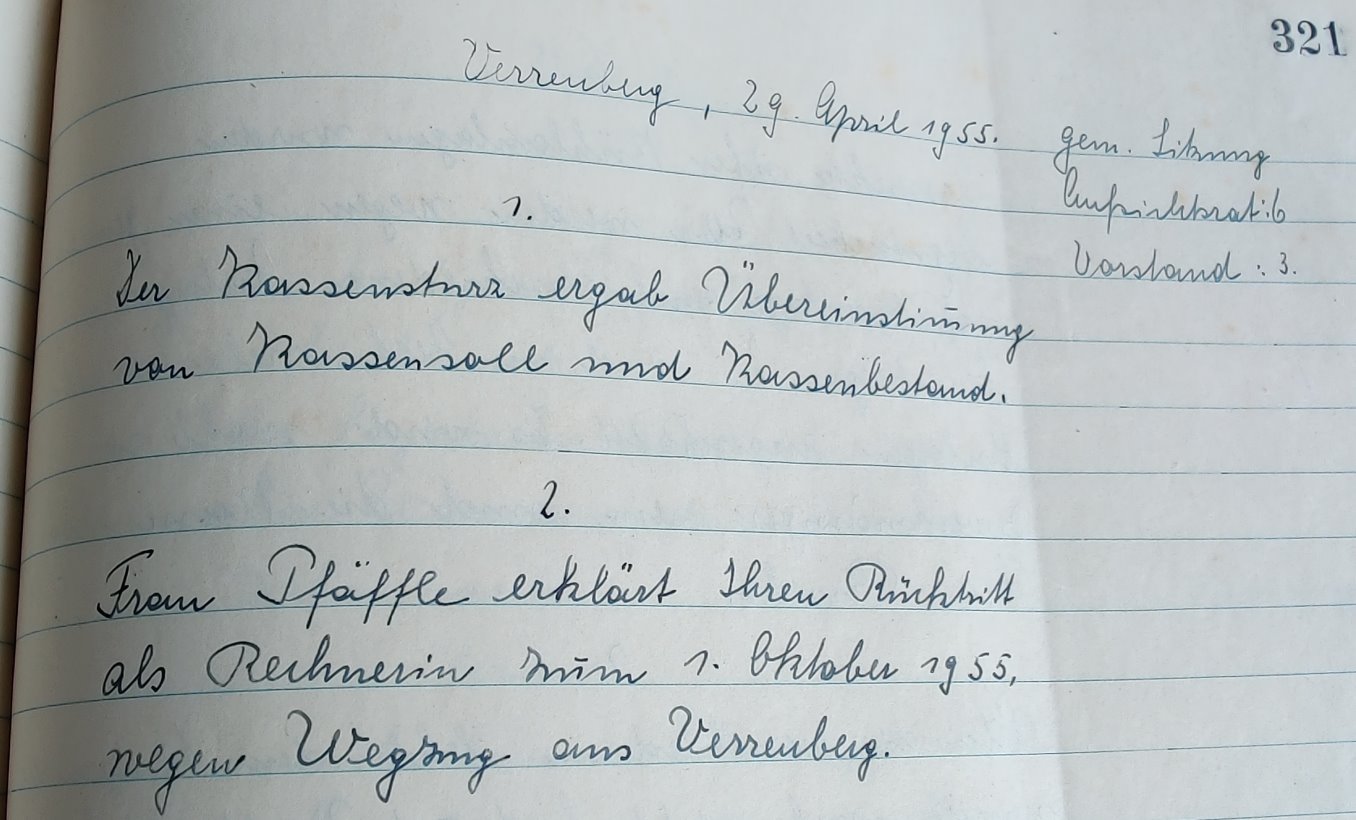 321
Verrenberg, 29. April 1955.
gem. Sitzung
Aufsichtsrat: 6
Vorstand: 3.
1.
Der Kassensturz ergab Übereinstim̄ung
von Kassensoll und Kassenbestand.
2.
Frau Pfäffle erklärt Ihren Rücktritt
als Rechnerin zum 1. Oktober 1955,
wegen Wegzug aus Verrenberg.